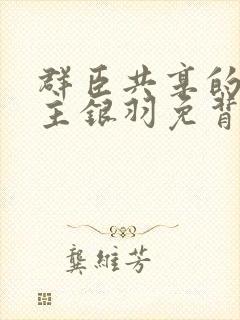 群臣共享的
主银羽免背
龚維芳